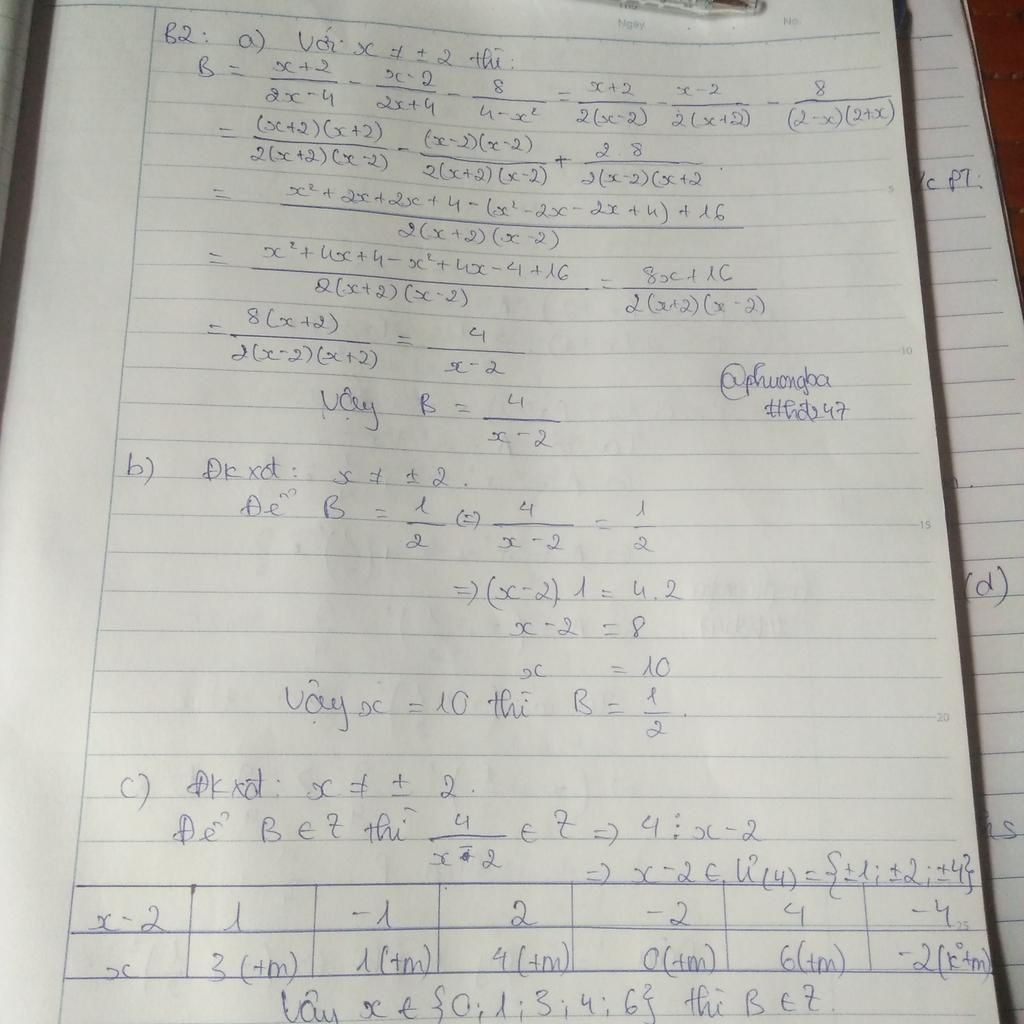 Ngày No.
B2: a) Với x ≠ ± 2 thì:
B = \frac{x+2}{2x-4} - \frac{x-2}{2x+4} - \frac{8}{4-x²} = \frac{x+2}{2(x-2)} - \frac{x-2}{2(x+2)} - \frac{8}{(2-x)(2+x)}
= \frac{(x+2)(x+2)}{2(x+2)(x-2)} - \frac{(x-2)(x-2)}{2(x+2)(x-2)} + \frac{2.8}{2(x-2)(x+2}
= \frac{x²+2x+2x+4-(x²-2x-2x+4)+16}{2(x+2)(x-2)}
= \frac{x²+4x+4-x²+4x-4+16}{2(x+2)(x-2)} = \frac{8x+16}{2(x+2)(x-2)}
= \frac{8(x+2)}{2(x-2)(x+2)} = \frac{4}{x-2}
@phuongba
Vậy B = \frac{4}{x-2}
b) Đkxđ: x ≠ ± 2.
Để B = \frac{1}{2} (=) \frac{4}{x-2} = \frac{1}{2}
=) (x-2).1 = 4.2
x-2 = 8
x = 10
Vậy x = 10 thì B = \frac{1}{2}.
c) Đkxđ: x ≠ ± 2.
Để B ∈ Z thì \frac{4}{x-2} ∈ Z =) 4 ⋮ x-2
=) x-2 ∈ Ư(4) = {±1; ±2; ±4}
x-2 1 -1 2 -2 4 -4
x 3(+m) 1(+m) 4(+m) 0(+m) 6(+m) -2(k°+m)
Vậy x ∈ {0; 1; 3; 4; 6} thì B ∈ Z.
5
10
15
20
25
(d)